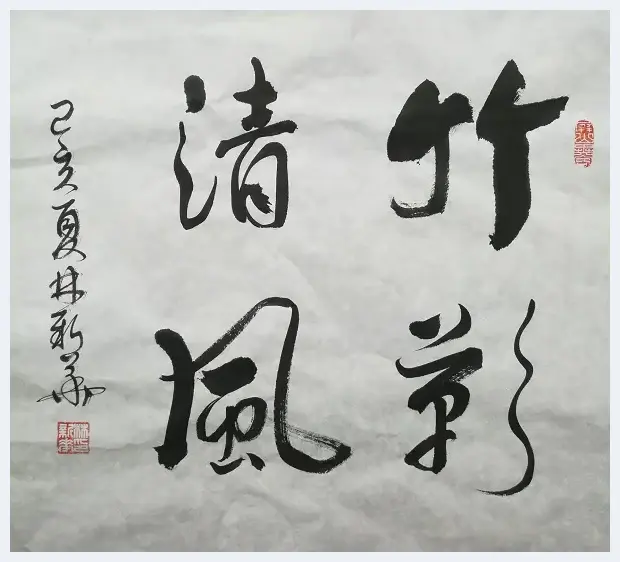 竹影
清風
己亥夏林新華